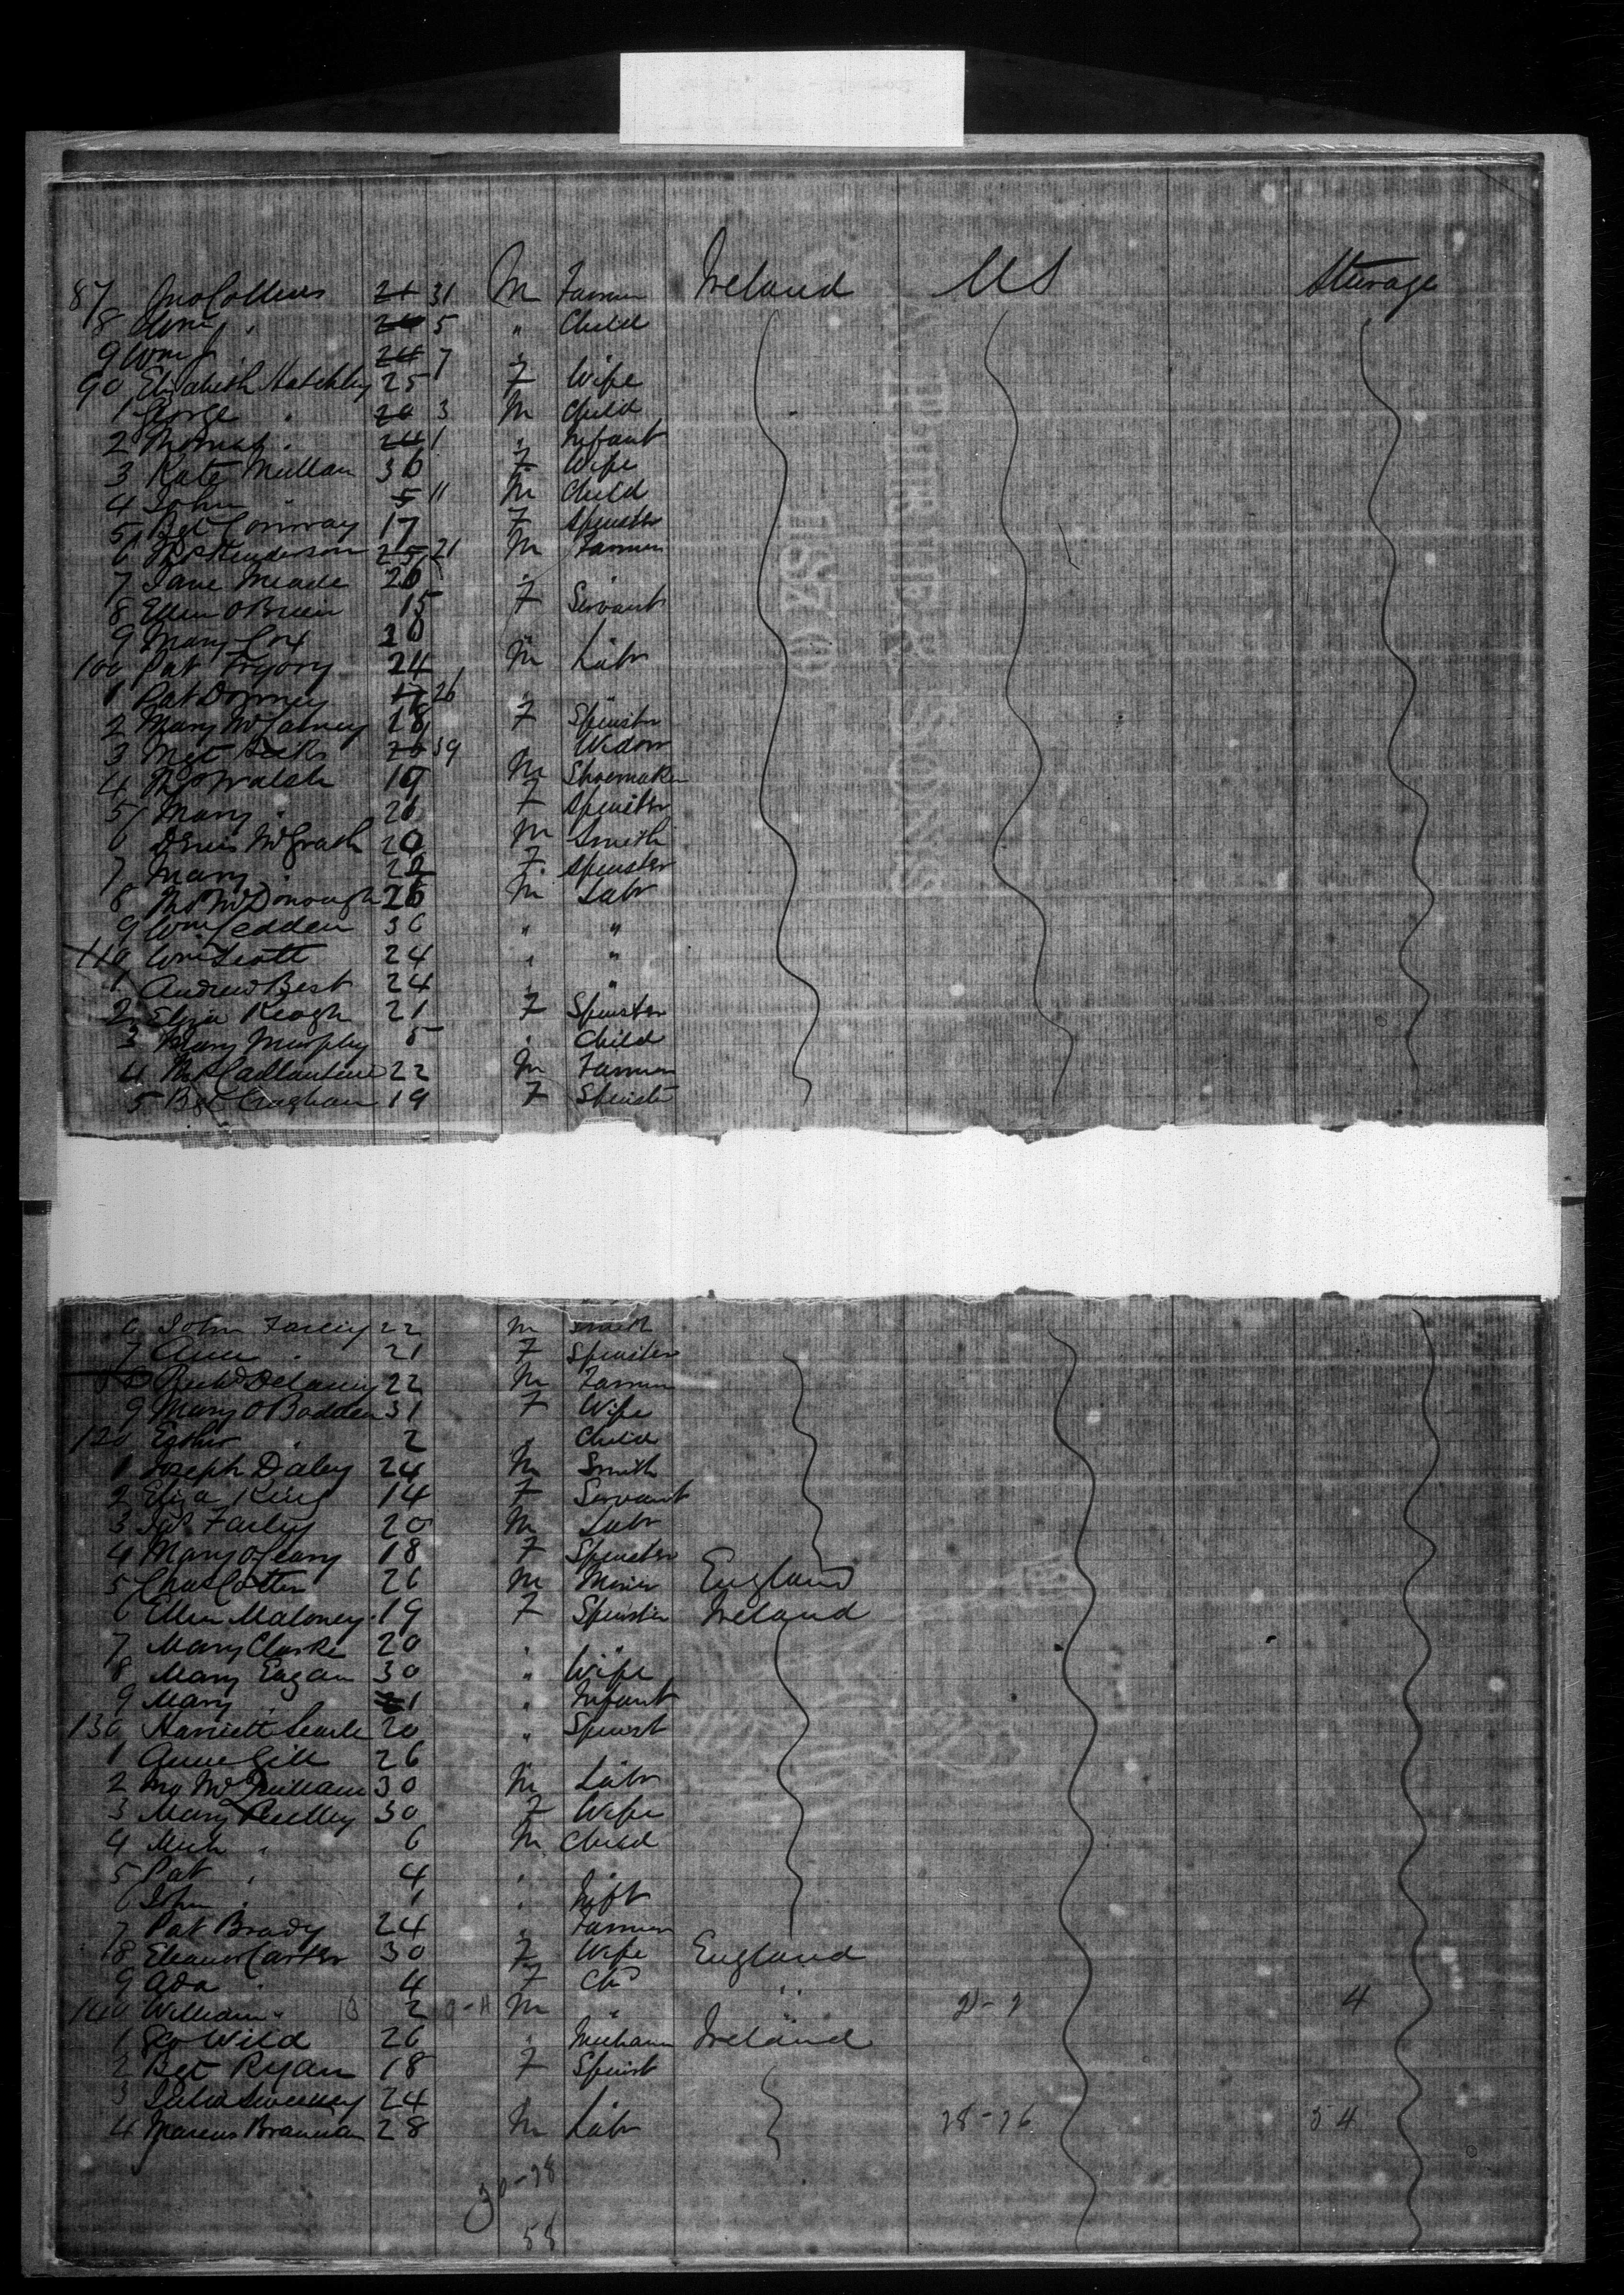 87 Jno Collins 21 31 M Farmer Ireland US Steerage
8 " 5 " Child
9 Wm J. " 24 7 "
90 Elizabeth Hatchley 25 F Wife
1 George " 20 3 M Child
2 Thomas " 24 1 " Infant
3 Kate Mullan 36 F Wife
4 John " 5 11 M Child
5 Bgt Conway 17 F Spinster
6 Thos Henderson 25 21 M Farmer
7 Jane Meade 26 " "
8 Ellen OBrien 15 F Servant
9 Mary Cox 20 " "
100 Pat Frgory 24 M Labr
1 Pat Downey 17 26 " "
2 Mary McCabney 18 F Spinstr
3 Mgt 20 59 Widow
4 Thos Walsh 19 M Shoemaker
5 Mary " 26 F Spinster
6 Denis McGrath 20 M Smith
7 Mary " 22 F Spinster
8 Thos McDonough 26 M Labr
9 Wm Cedden 36 " "
110 Wm Scott 24 " "
1 Andrew Best 24 " "
2 Eliza Keogh 21 F Spinster
3 Mary Murphy 5 " Child
4 Thos Callantine 22 M Farmer
5 Bgt Craghan 19 F Spinstr
6 John Farley 22 M Smith
7 Ann " 21 F Spinster
8 Richd Delaney 22 M Farmer
9 Mary OBadden 31 F Wife
120 Esther " 2 " Child
1 Joseph Daley 24 M Smith
2 Eliza King 14 F Servant
3 Jas Farley 20 M Labr
4 Mary OLeary 18 F Spinster
5 Chas Cotter 26 M Miner England
6 Ellen Maloney 19 F Spinster Ireland
7 Mary Clarke 20 " "
8 Mary Eagan 30 " Wife
9 Mary " 1 " Infant
130 Harriett Searle 20 " Spinst
1 Anne Gill 26 " "
2 Jno McQuillan 30 M Labr
3 Mary Reilley 30 F Wife
4 Mich " 6 M Child
5 Pat " 4 " "
6 John " 1 " Inft
7 Pat Brady 24 " Farmer
8 Eleanor Carter 30 F Wife England
9 Ada " 4 F Chd "
140 William " 2 M " " 2-2 4
1 Geo Wild 26 " Mechanic Ireland
2 Bgt Ryan 18 F Spinst
3 Julia Sweeney 24 " "
4 Marcus Brannan 28 M Labr 28-26 54
30-28
58